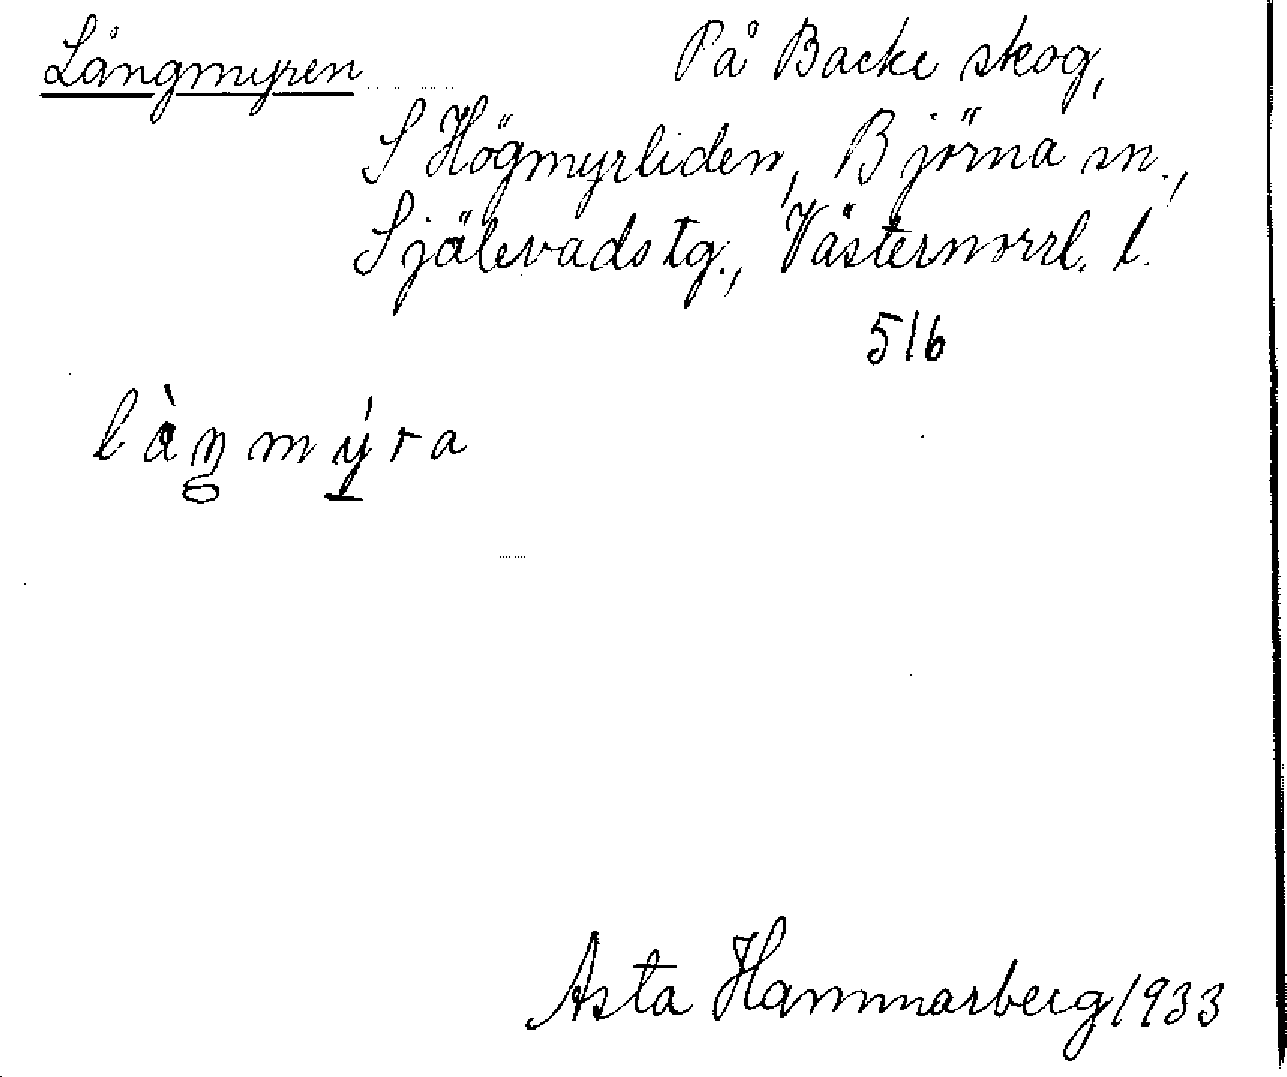 Långmyren
På Backe skog,
S Högmyrliden, Björna sn.,
Själevads tg., Västernorrl. l.
516
làŋmýra
Asta Hammarberg 1933